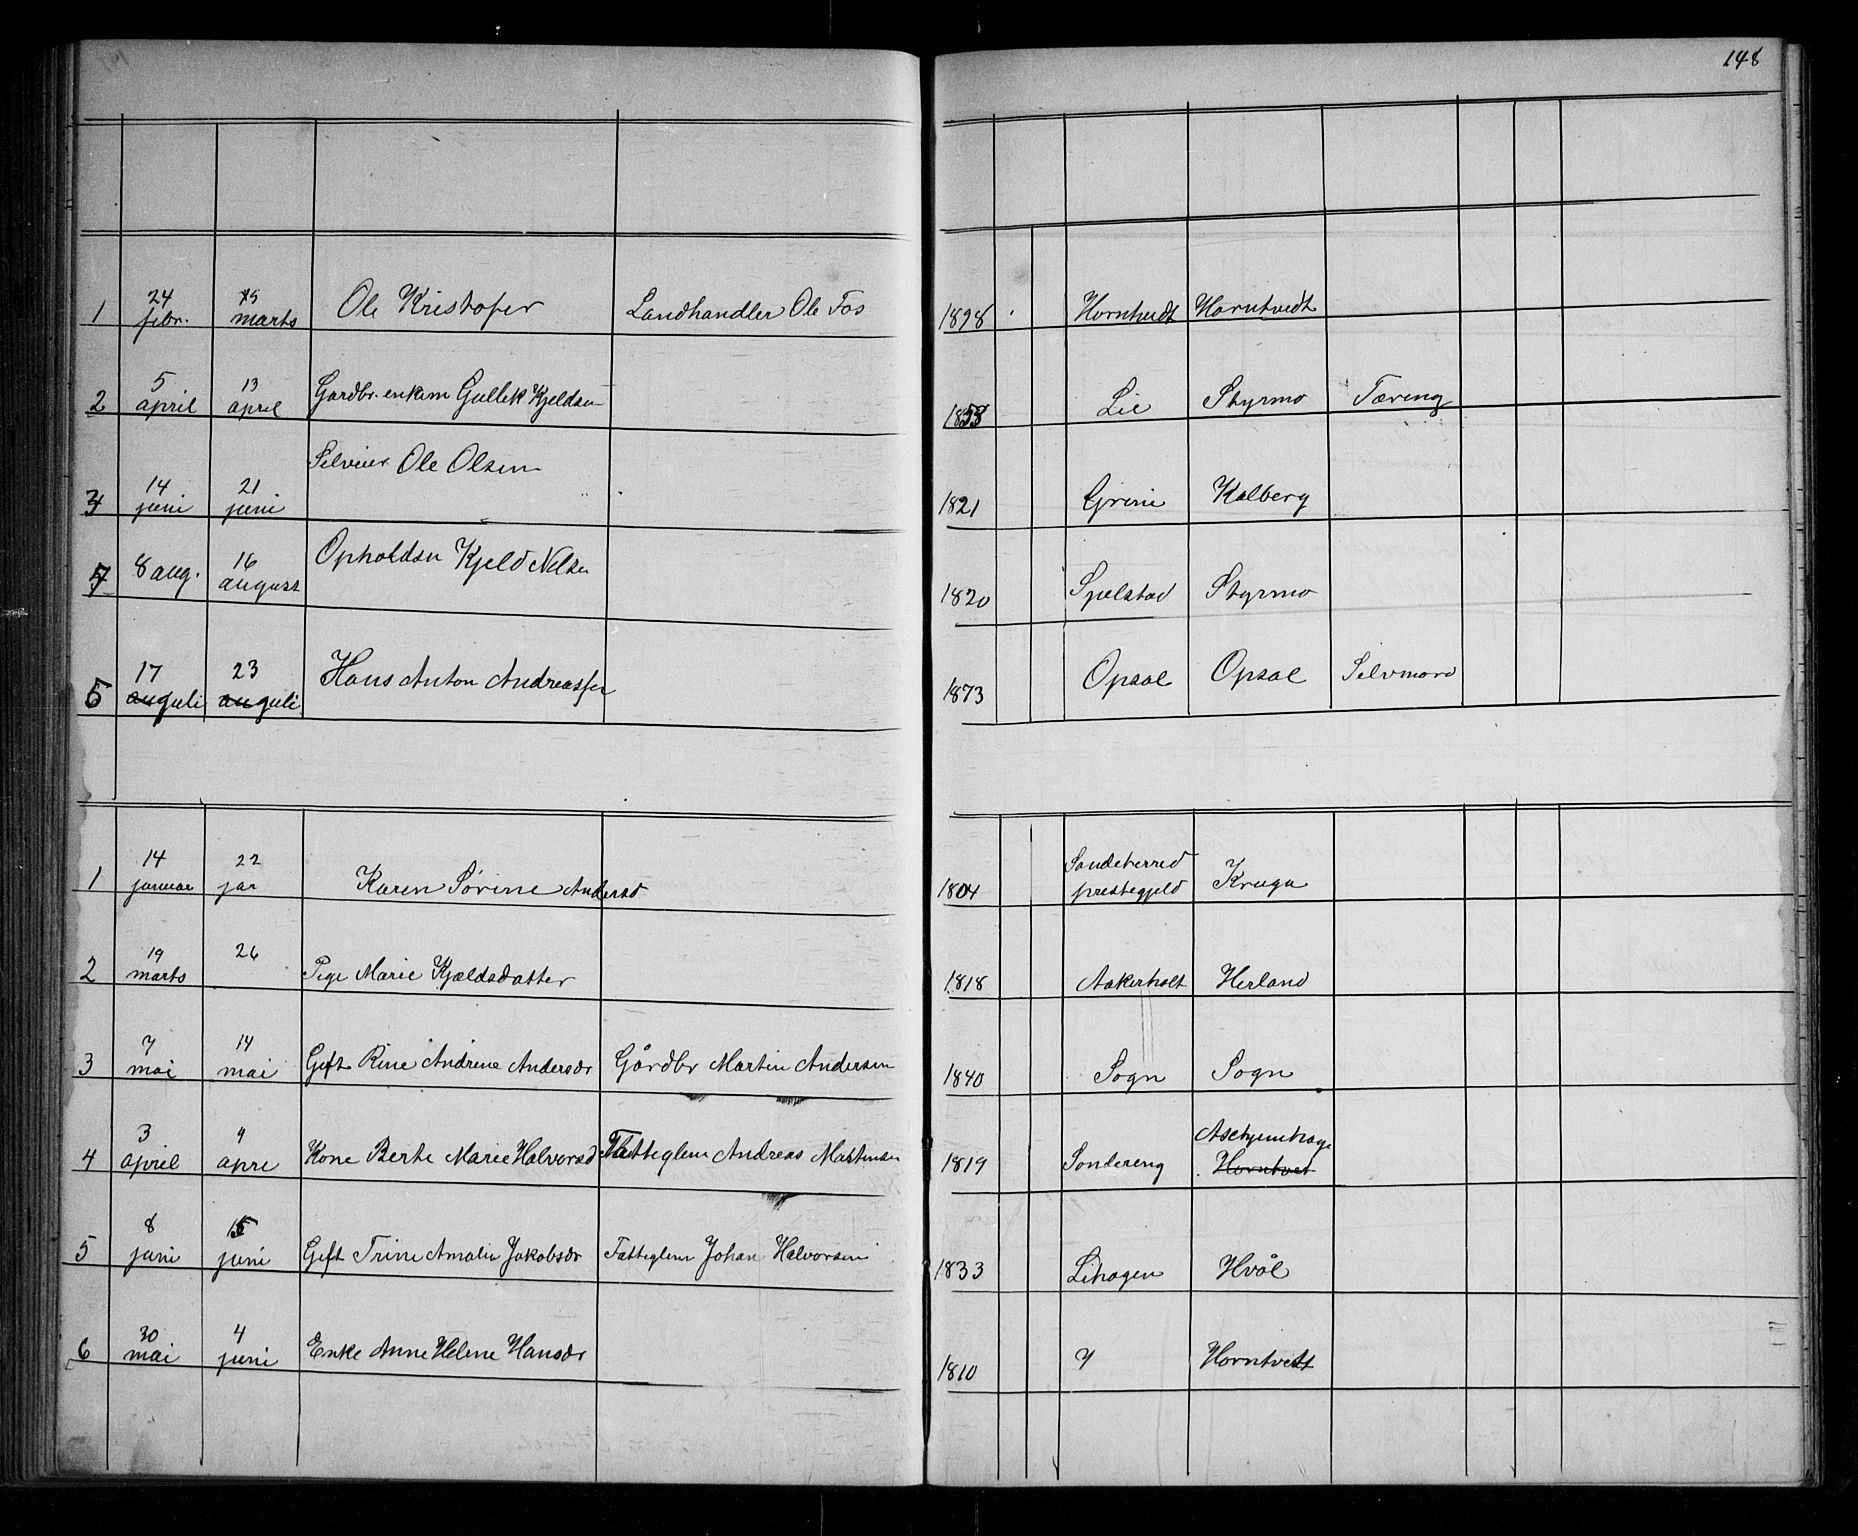 148
1 24 febr. 15 marts Ole Kristofer Landhandler Ole Fos 1898 Horntvedt Horntvedt
2 5 april 13 april Gardbr. enkem Gullek Kjeldsen 1853 Lie Styrmo Tæring
14 juni 21 juni Selveier Ole Olsen 1821 Grini Kalberg
8 aug. 16 august Opholdsm Kjeld Nilsen 1820 Spelstad Styrmo
5 17 juli 23 juli Hans Anton Andreassen 1873 Opsal Opsal Selvmord
1 14 januar 22 jar Karen Sørine Andersd 1804 Sandeherred prestegjeld Kruga
2 19 marts 26 Pige Marie Kjældsdatter 1818 Aakerholt Herland
3 7 mai 14 mai Gift Rine Andrene Andersdr Gårdbr Martin Andersen 1840 Sogn Sogn
4 3 april 9 apre Kone Berte Marie Halvorsd Fatteglem Andreas Martinsen 1819 Sondereng Horntvet
5 8 juni 15 juni Gift Trine Amalie Jakobsdr Fatteglem Johan Halvorsen 1833 Lihagen Hvål
6 30 mai 4 juni Enke Anne Helene Hansdr 1810 Horntvett